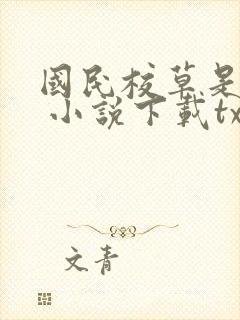 國民校草是
小說下載tx
文青